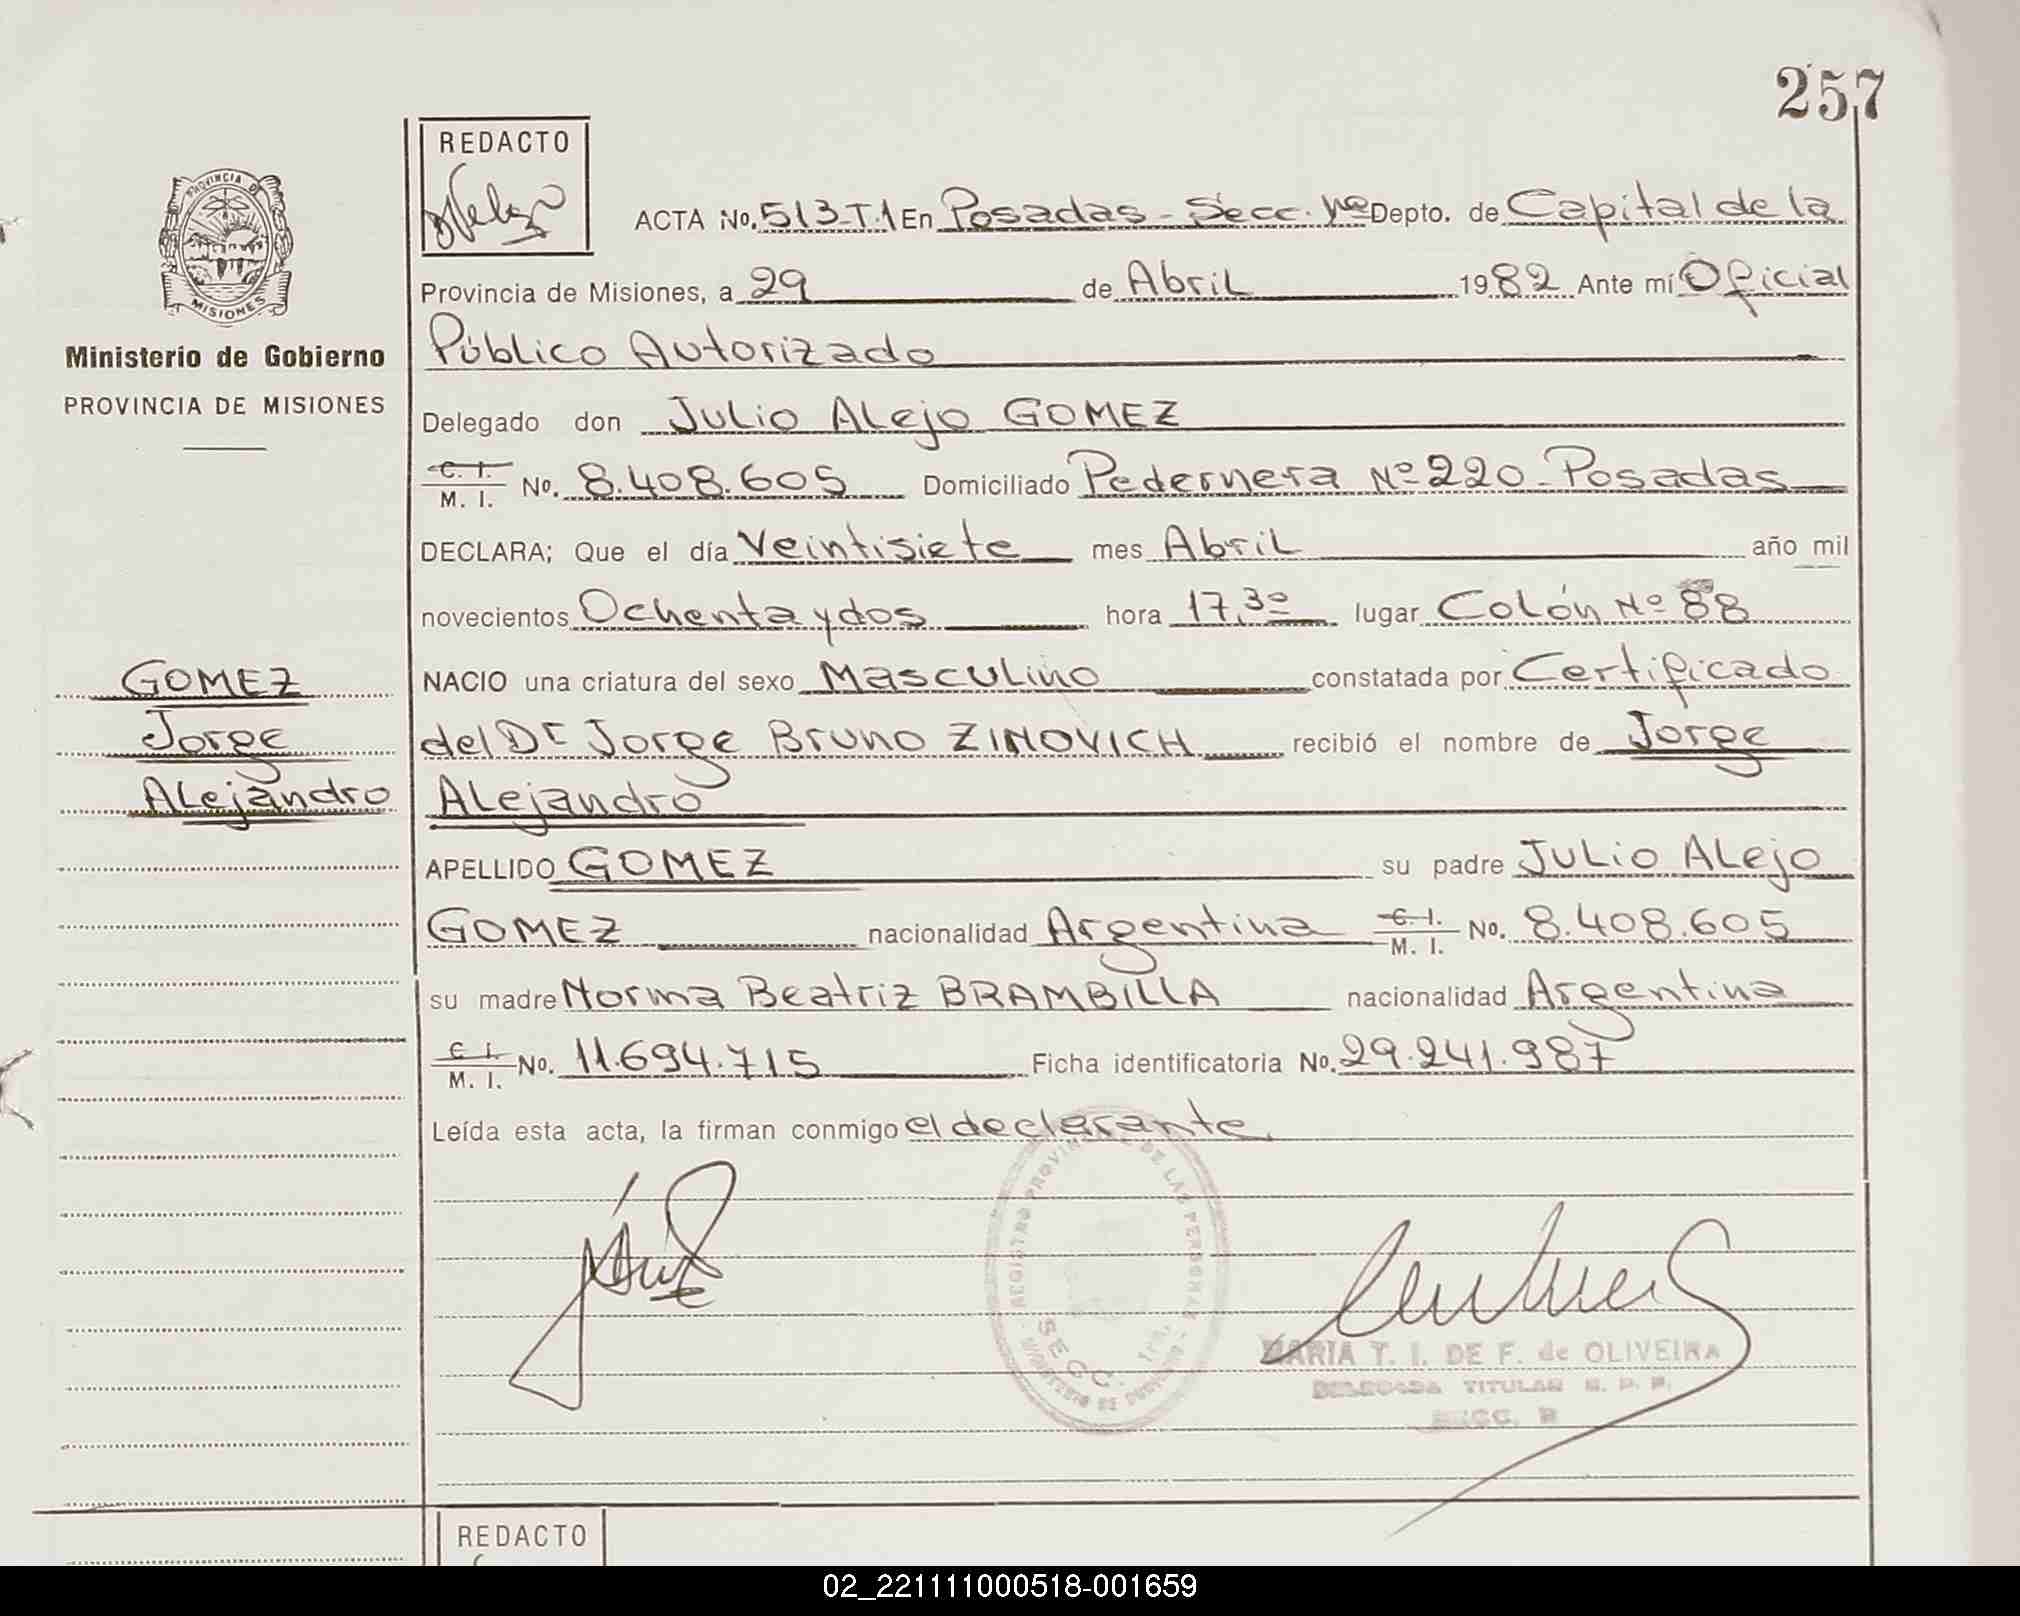 257
REDACTO
ACTA No. 513-T.1 En Posadas - Secc. 1ra Depto. de Capital de la
PROVINCIA DE
MISIONES
Provincia de Misiones, a 29 de Abril 1982 Ante mí Oficial
Ministerio de Gobierno
PROVINCIA DE MISIONES
Público Autorizado
Delegado don Julio Alejo GOMEZ
C. I. / M. I. No. 8.408.605 Domiciliado Pedernera Nº 220 - Posadas
DECLARA; Que el día Veintisiete mes Abril año mil
novecientos Ochenta y dos hora 17,30 lugar Colón Nº 88
GOMEZ
Jorge
Alejandro
NACIO una criatura del sexo Masculino constatada por Certificado
del Dr Jorge Bruno ZINOVICH recibió el nombre de Jorge
Alejandro
APELLIDO GOMEZ su padre Julio Alejo
GOMEZ nacionalidad Argentina C. I. / M. I. No. 8.408.605
su madre Norma Beatriz BRAMBILLA nacionalidad Argentina
C. I. / M. I. No. 11.694.715 Ficha identificatoria No. 29.241.987
Leída esta acta, la firman conmigo el declarante.
REGISTRO PROVINCIAL DE LAS PERSONAS
SECC. 1ra.
MINISTERIO DE GOBIERNO
MARIA T. I. DE F. de OLIVEIRA
DELEGADA TITULAR R. P. P.
SECC.
REDACTO
02_221111000518-001659